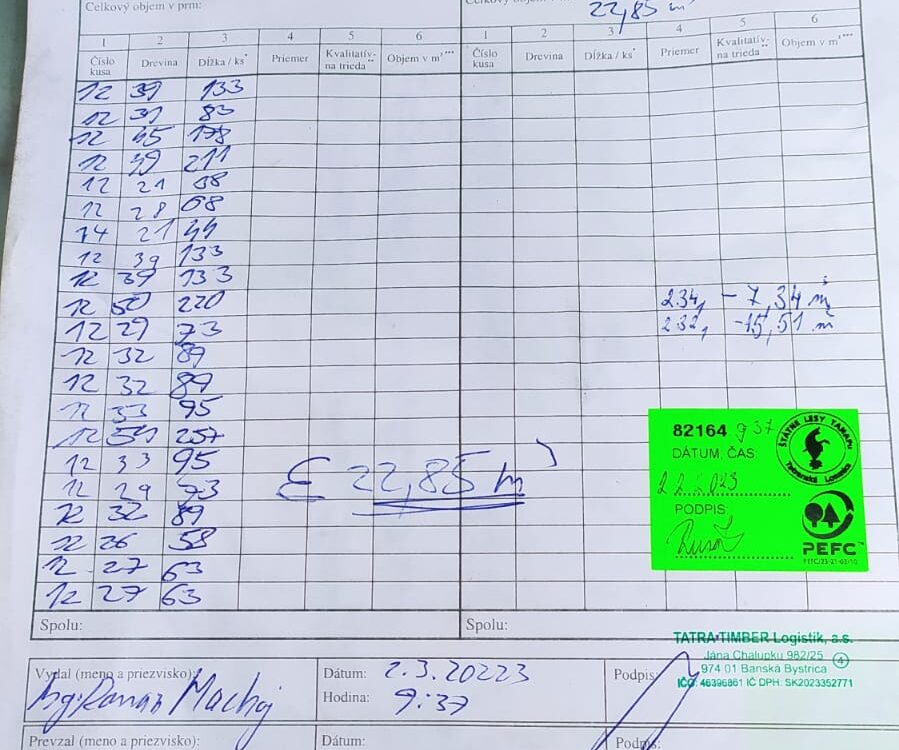 Celkový objem v prm:
22,85 m
1 2 3 4 5 6 1 2 3 4 5 6
Číslo kusa Drevina Dĺžka / ks* Priemer Kvalitatív- na trieda** Objem v m³*** Číslo kusa Drevina Dĺžka / ks* Priemer Kvalitatív- na trieda** Objem v m³***
12 39 133
12 31 83
12 45 178
12 49 211
12 21 38
12 28 68
14 21 44
12 39 133
12 39 133
12 50 220
234, - 7,34 m³
12 29 73
232, -15,51 m³
12 32 89
12 32 89
12 33 95
12 54 257
12 33 95
12 29 73
12 32 89
12 26 58
12 27 63
12 27 63
Σ 22,85 m³
82164 9 37
DÁTUM, ČAS:
PODPIS:
ŠTÁTNE LESY TANAPU
Tatranská Lomnica
PEFC™
PEFC/23-21-03/10
Spolu: Spolu:
TATRA TIMBER Logistik, a.s.
Jána Chalupku 982/25
974 01 Banská Bystrica
4
IČO: 46396861 IČ DPH: SK2023352771
Vydal (meno a priezvisko): Dátum: 2.3.20223 Podpis:
Ing. Roman Machaj Hodina: 9:37
Prevzal (meno a priezvisko): Dátum: Podpis: